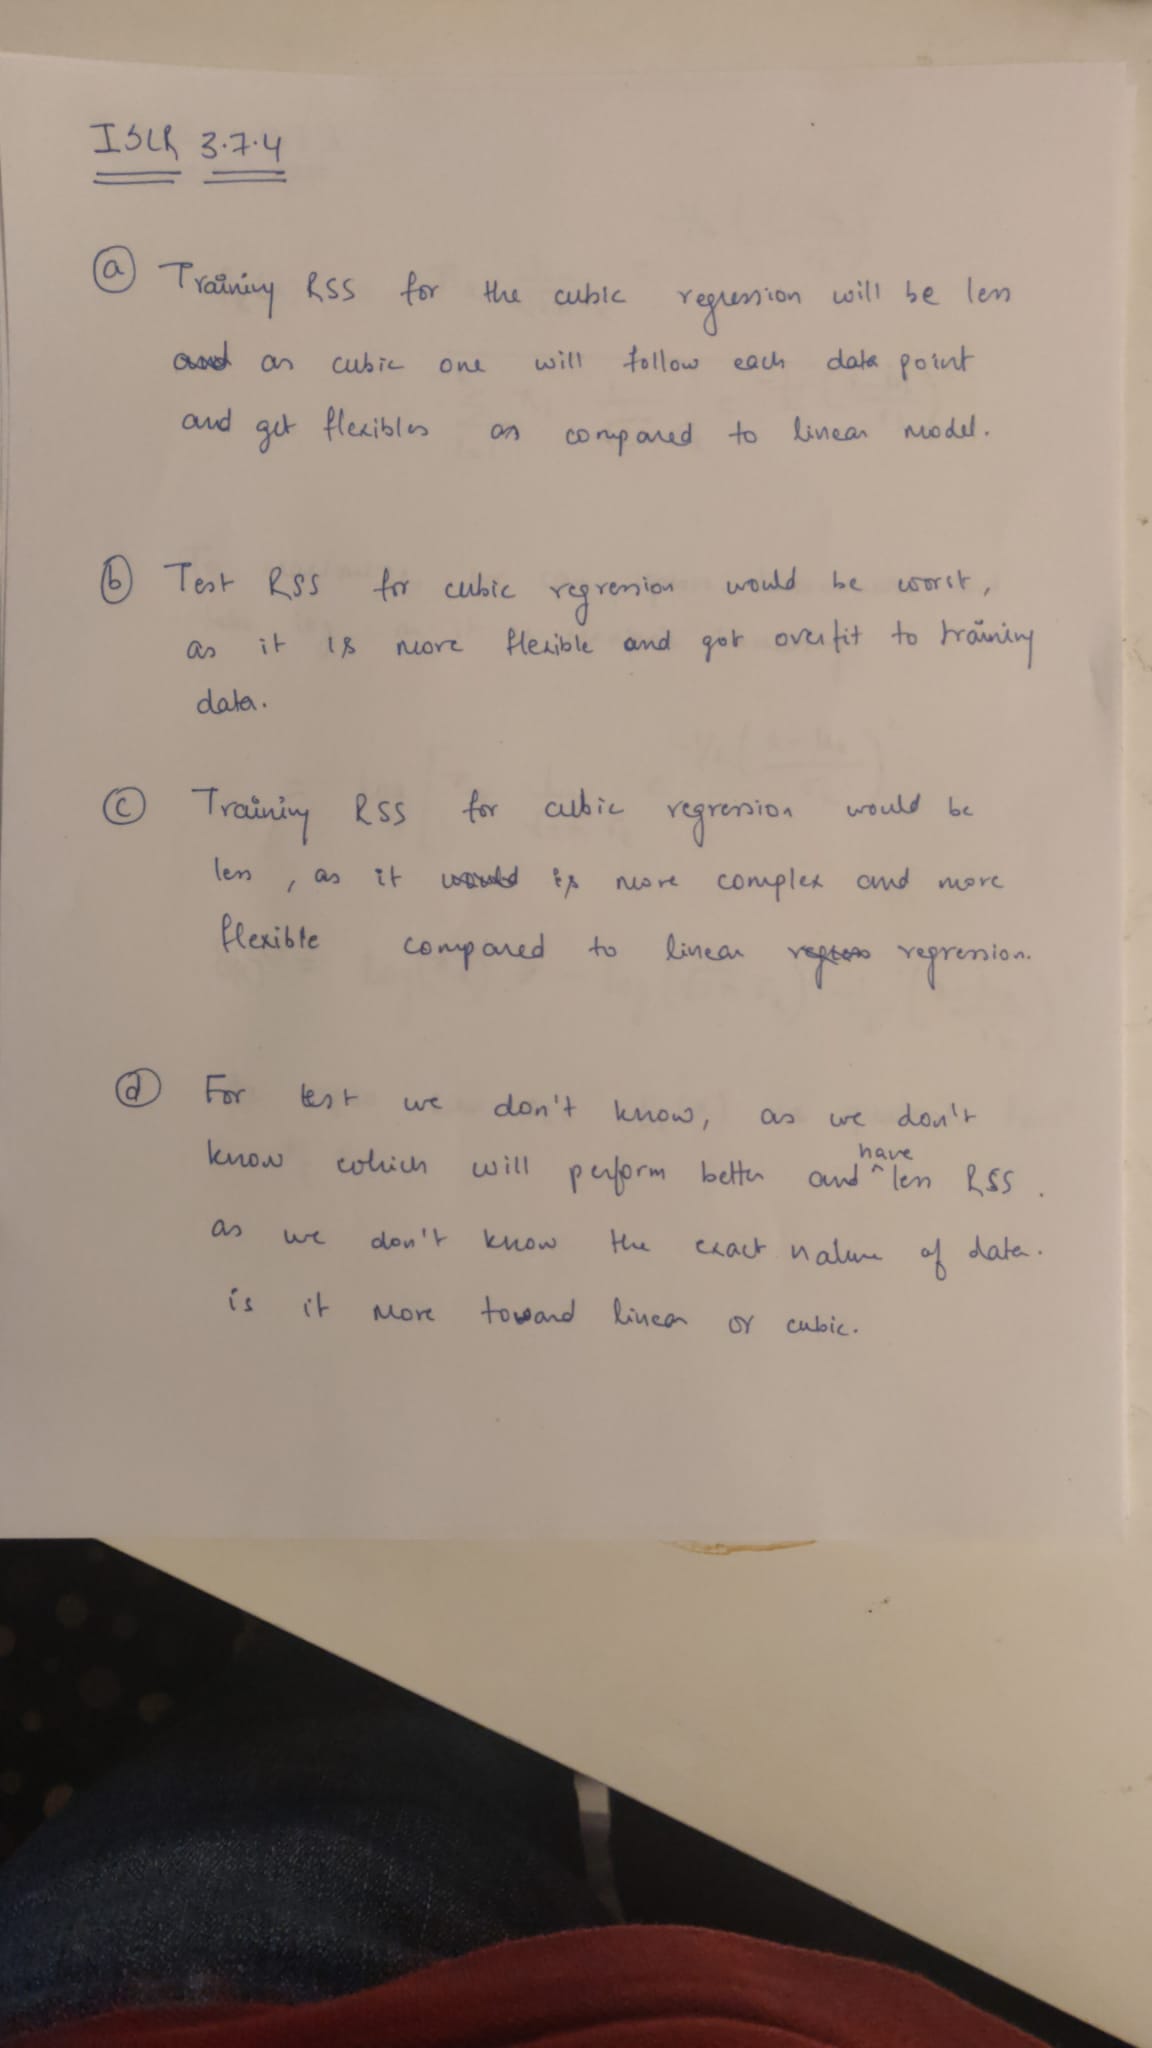 ISLR 3.7.4
(a) Training RSS for the cubic regression will be less
and as cubic one will follow each data point
and get flexibles as compared to linear model.
(b) Test RSS for cubic regression would be worst,
as it is more flexible and got overfit to training
data.
(c) Training RSS for cubic regression would be
less, as it would is more complex and more
flexible compared to linear regress regression.
(d) For test we don't know, as we don't
know which will perform better and have less RSS.
as we don't know the exact nature of data.
is it more toward linear or cubic.